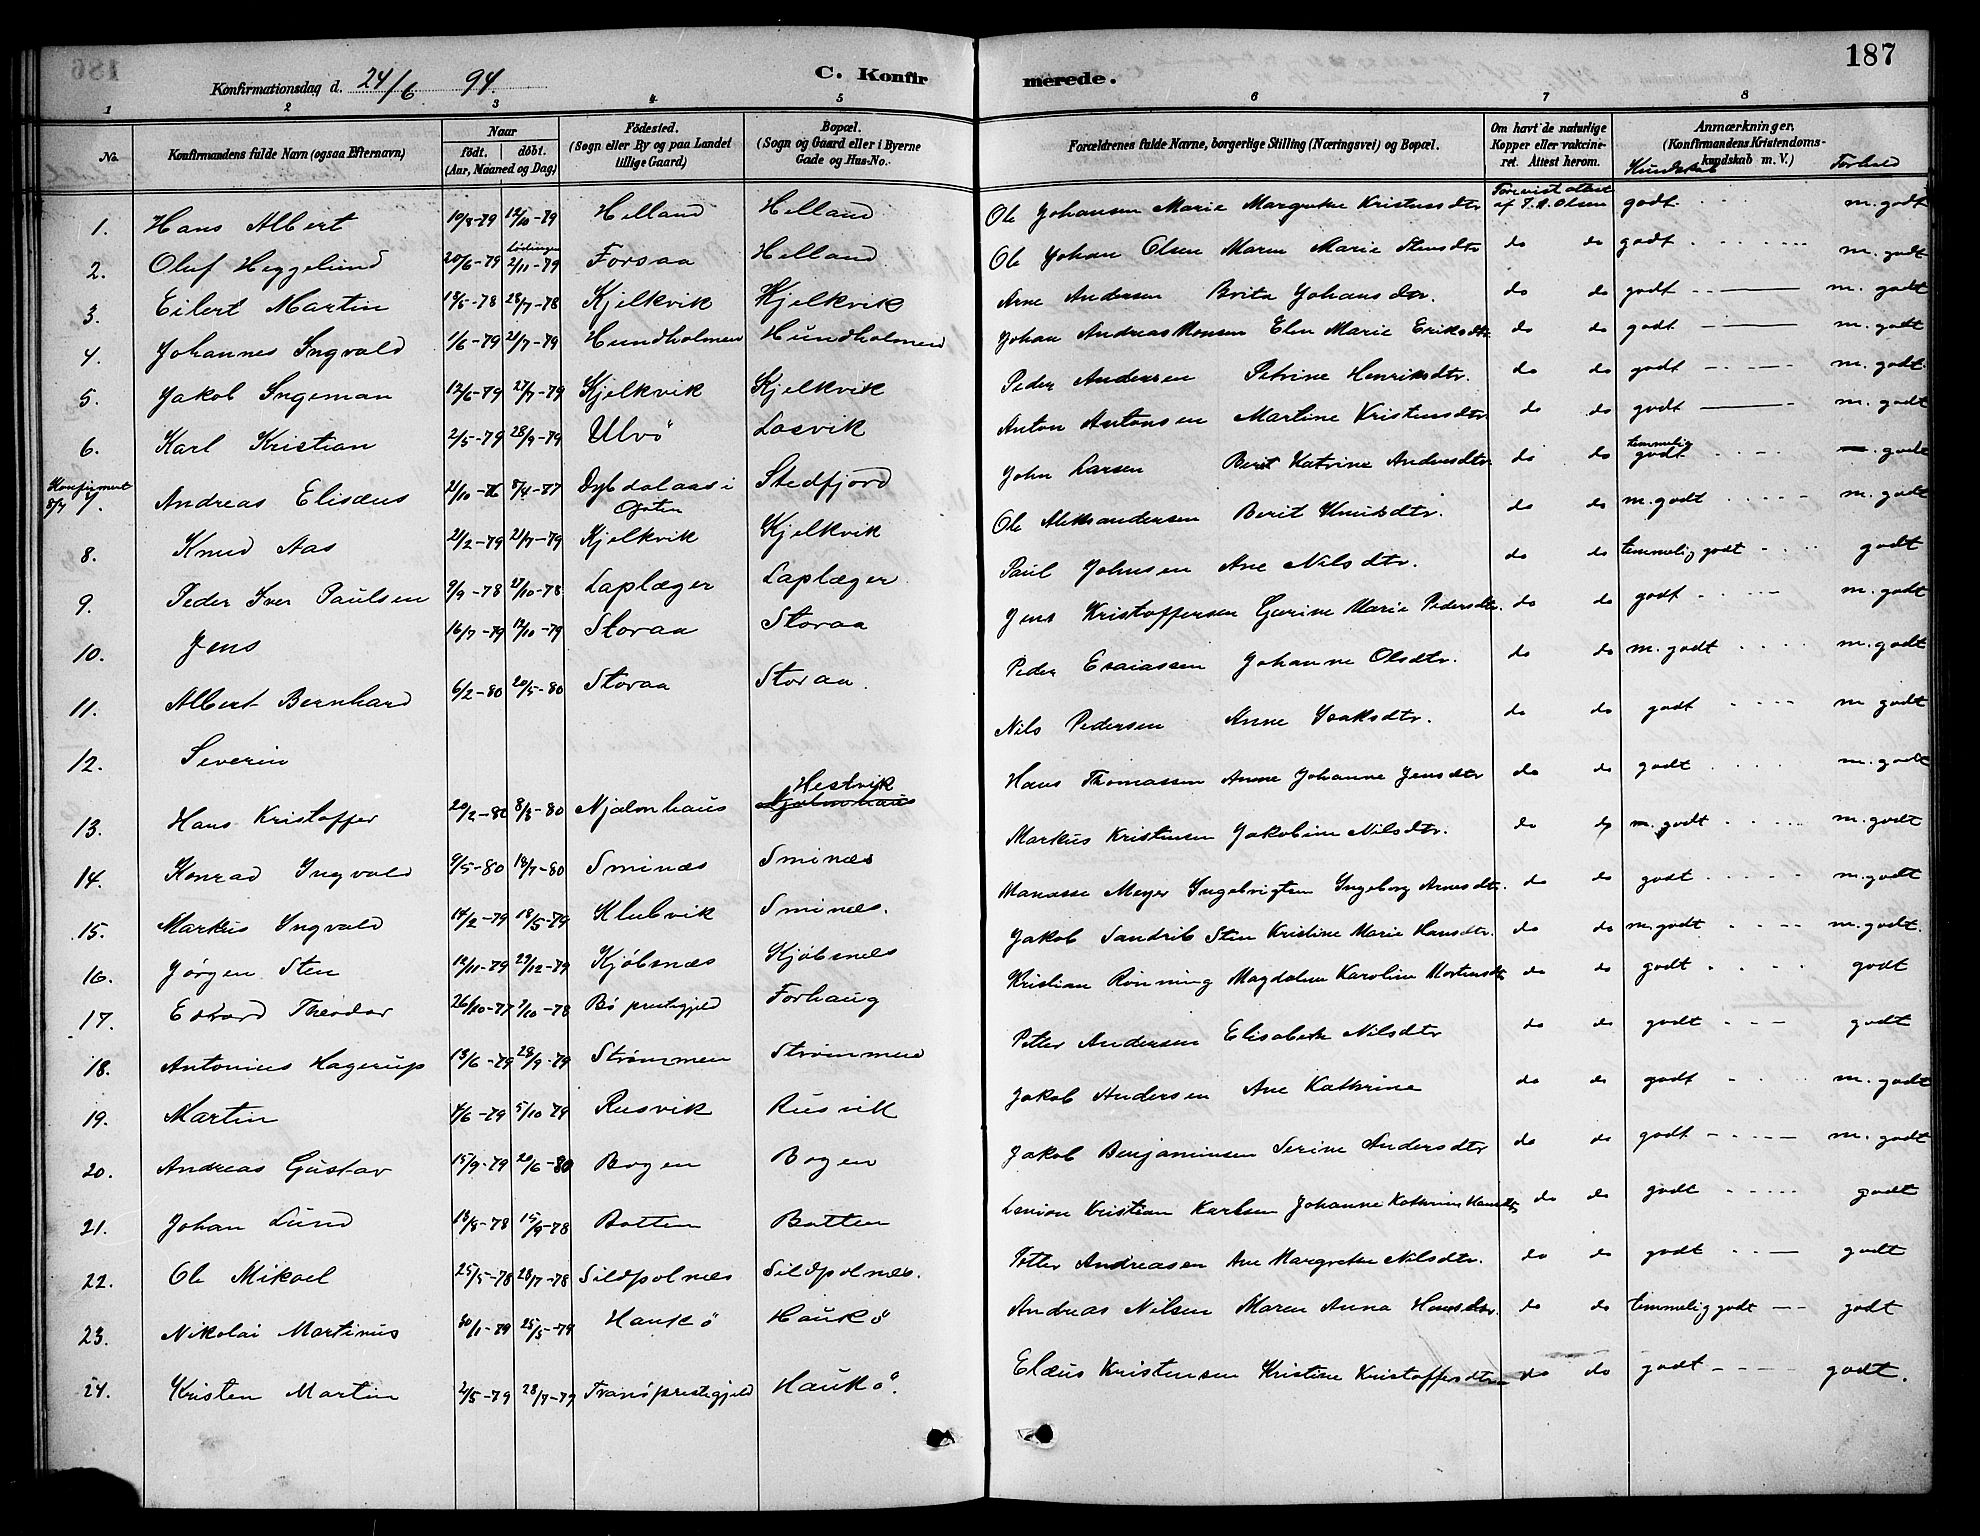 187
Konfirmationsdag d. 24/6 94. C. Konfirmerede.
1 2 3 4 5 6 7 8
No. Konfirmandens fulde Navn (ogsaa Efternavn) Naar født. døbt. (Aar, Maaned og Dag) Fødested. (Sogn eller By og paa Landet tillige Gaard) Bopæl. (Sogn og Gaard eller i Byerne Gade og Hus-No.) Forældrenes fulde Navne, borgerlige Stilling (Næringsvei) og Bopæl. Om havt de naturlige Kopper eller vaccineret. Attest herom. Anmærkninger. (Konfirmandens Kristendomskundskab m. V.) Kundskab Forhold
1. Hans Albert 10/8-79 12/10-79 Helland Helland Ole Johansen Marie Margrethe Kristensdtr Forevist attest af T.A. Olsen godt m. godt
2. Oluf Heggelund 20/6-79 Lødingen 2/11-79 Forsaa Helland Ole Johan Olsen Maren Marie Stensdtr do do godt m. godt
3. Eilert Martin 18/5-78 28/7-78 Kjelkvik Kjelkvik Arne Andersen Brita Johansdtr. do do godt m. godt
4. Johannes Ingvald 1/6-79 21/7-79 Hundholmen Hundholmen Johan Andreas Monsen Elen Marie Eriksdtr do do godt m. godt
5. Jakob Ingeman 12/6-79 27/7-79 Kjelkvik Kjelkvik Peder Andersen Petrine Henriksdtr. do do godt m. godt
6. Karl Kristian 2/5-79 28/9-79 Ulvö Losvik Anton Antonsen Martine Kristensdtr do do godt m. godt
Konfirmert 8/7 7. Andreas Elisæus 21/10-76 8/4-77 Dybdalaas i Ofoten Stedfjord John Larsen Berit Katrine Andersdtr do do temmelig godt godt
8. Knud Aas 21/2-79 21/7-79 Kjelkvik Kjelkvik Ole Aleksandersen Berit Knudsdtr. do do m. godt m. godt
9. Peder Iver Paulsen 9/9-78 27/10-78 Laplæger Laplæger Paul Johnsen Ane Nilsdtr. do do temmelig godt godt
10. Jens 16/7-79 12/10-79 Storaa Storaa Jens Kristoffersen Gjerine Marie Pedersdtr. do do godt m. godt
11. Albert Bernhard 6/2-80 20/5-80 Storaa Storaa. Peder Esaiassen Johanne Olsdtr. do do m. godt m. godt
12. Severin Nils Pedersen Anne Isaksdtr. do do godt m godt
13. Hans Kristoffer 20/2-80 8/8-80 Njalmhaus Hestvik Hans Thomassen Anne Johanne Jensdtr do do godt m. godt
14. Konrad Ingvald 9/5-80 18/7-80 Sminæs Sminæs Markus Kristensen Jakobine Nilsdtr. do do m. godt m. godt
15. Markus Ingvald 14/2-79 18/5-79 Klubvik Sminæs. Manasse Meyer Ingebrigtsen Ingeborg Arnesdtr. do do godt m. godt
16. Jørgen Sten 12/11-79 29/12-79 Kjøbsnæs Kjøbsnæs Jakob Sandrib Sten Kristine Marie Hansdtr. do do m. godt m. godt.
17. Edvard Theodor 26/10-77 2/10-78 Bö prestegjeld Forhaug Kristian Rönning Magdalene Karoline Mortensdtr do do godt godt
18. Antonius Hagerup 13/6-79 28/9-79 Strømmen Strømmen Petter Andersen Elisabeth Nilsdtr do do godt godt
19. Martin 4/6-79 5/10 79 Rusvik Rusvik Jakob Andersen Ane Kathrine do do godt m. godt
20. Andreas Gustav 15/9-79 20/6-80 Bogen Bogen Jakob Benjaminsen Serine Andersdtr do do godt m. godt
21. Johan Lund 18/8-78 15/9-78 Botten Botten Kristian Karlsen Johanne Kathrine Hansdtr do do godt godt
22. Ole Mikael 25/5-78 28/7-78 Sildpolnæs Sildpolnæs. Petter Andreasen Ane Margrethe Nilsdtr. do do godt godt
23. Nikolai Martinus 30/1-79 25/5-79 Haukö Haukö Andreas Nilsen Maren Anna Hansdtr. do do temmelig godt godt
24. Kristen Martin 2/5-79 28/7-79 Tranö prestegjeld Haukö. Elæus Kristensen Kristine Kristoffersdtr do do godt godt.